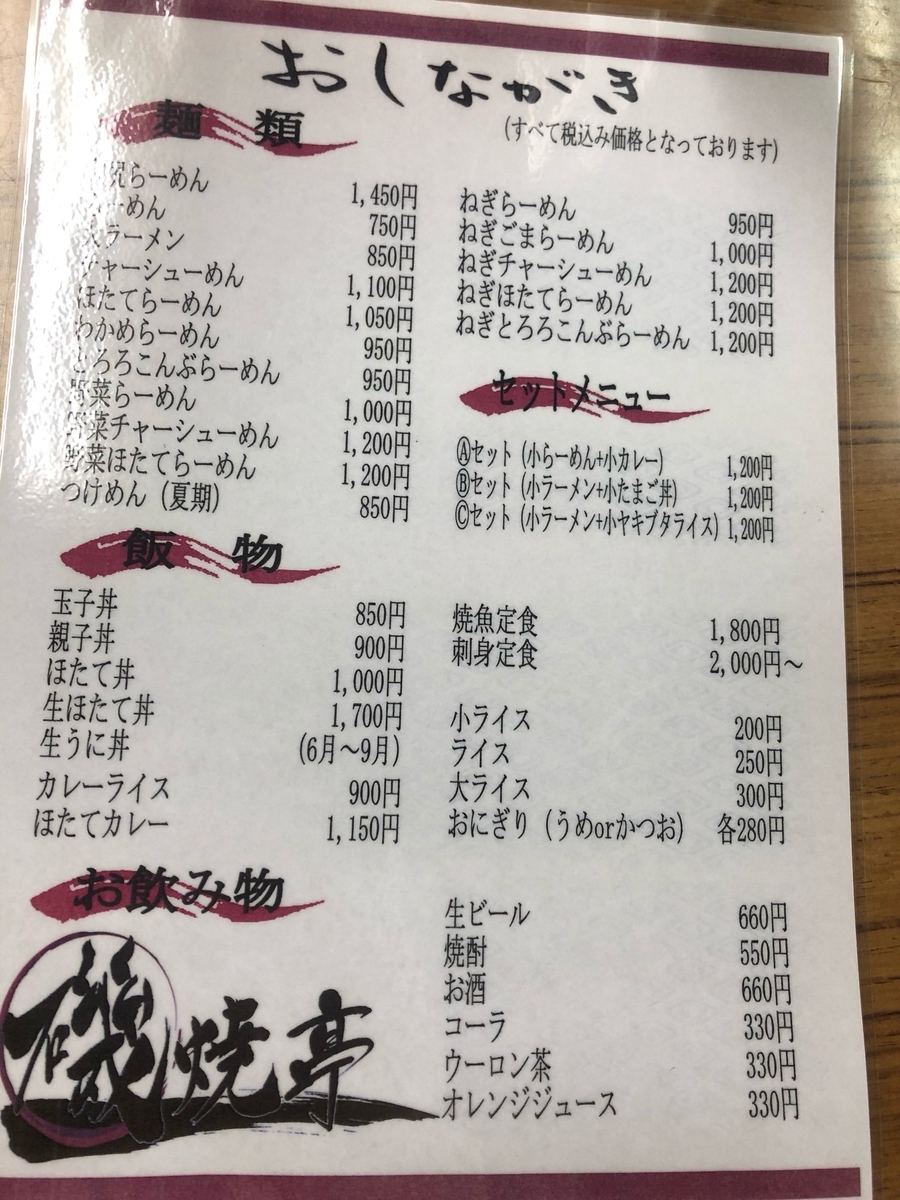 おしながき
(すべて税込み価格となっております)
麺 類
らーめん 1,450円
ーめん 750円
ラーメン 850円
チャーシューめん 1,100円
ほたてらーめん 1,050円
わかめらーめん 950円
とろろこんぶらーめん 950円
野菜らーめん 1,000円
野菜チャーシューめん 1,200円
野菜ほたてらーめん 1,200円
つけめん (夏期) 850円
ねぎらーめん 950円
ねぎごまらーめん 1,000円
ねぎチャーシューめん 1,200円
ねぎほたてらーめん 1,200円
ねぎとろろこんぶらーめん 1,200円
セットメニュー
Ⓐセット (小らーめん+小カレー) 1,200円
Ⓑセット (小ラーメン+小たまご丼) 1,200円
Ⓒセット (小ラーメン+小ヤキブタライス) 1,200円
飯 物
玉子丼 850円
親子丼 900円
ほたて丼 1,000円
生ほたて丼 1,700円
生うに丼 (6月～9月)
カレーライス 900円
ほたてカレー 1,150円
焼魚定食 1,800円
刺身定食 2,000円～
小ライス 200円
ライス 250円
大ライス 300円
おにぎり (うめorかつお) 各280円
お飲み物
生ビール 660円
焼酎 550円
お酒 660円
コーラ 330円
ウーロン茶 330円
オレンジジュース 330円
磯焼亭